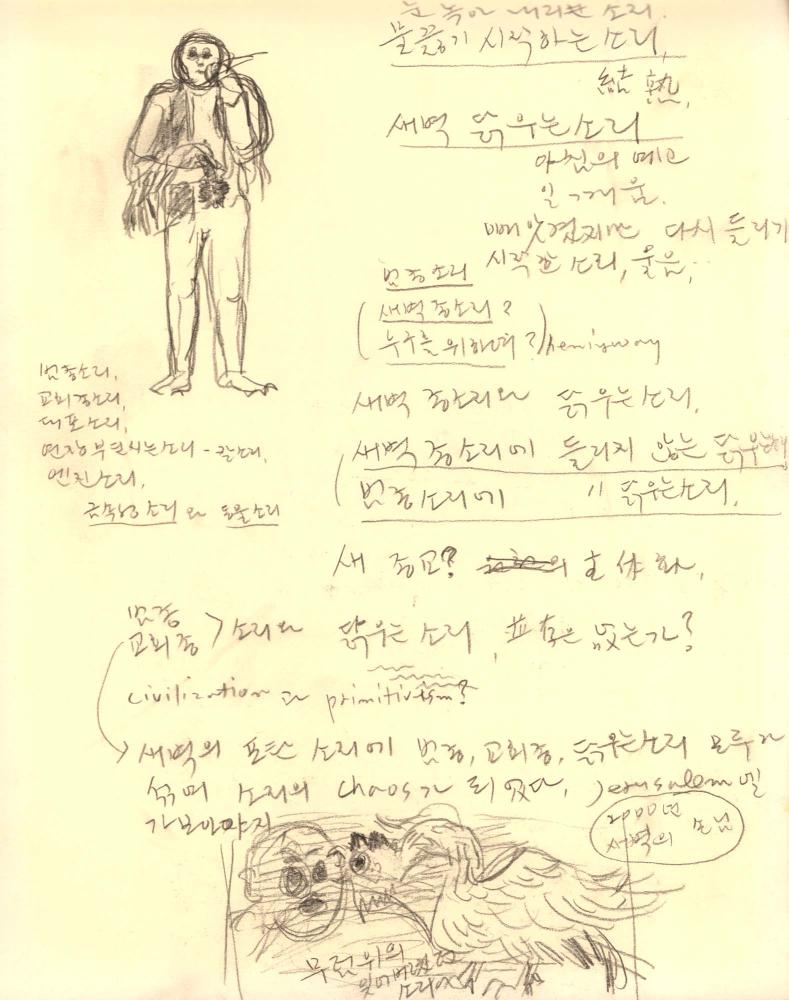 눈 녹아 내리는 소리.
물 끓기 시작하는 소리,
새벽 닭우는 소리
아침의 예고
일깨움.
빼앗겼지만 다시 들리기
시작한 소리, 울음,..
범종소리
(새벽종소리?
누구를 위하여?) hemingway
새벽 종소리와 닭우는 소리,
범종소리,
교회종소리,
대포소리,
연장 부딪치는 소리 - 칼소리,
엔진소리,
금속성 소리와 동물소리
새벽 종소리에 들리지 않는 닭우는
범종소리에 〃 닭우는소리,
새 종교? 의 主体화,
범종
교회종 > 소리와 닭우는 소리, 共存은 없는가?
civilization과 primitivism?
새벽의 포탄 소리에 범종, 교회종, 닭우는소리 모두가
섞여 소리의 chaos가 되었다, Jerusalem엘
가보아야지
2000년
새벽의 손님
무덤위의
잊어버렸던
소리